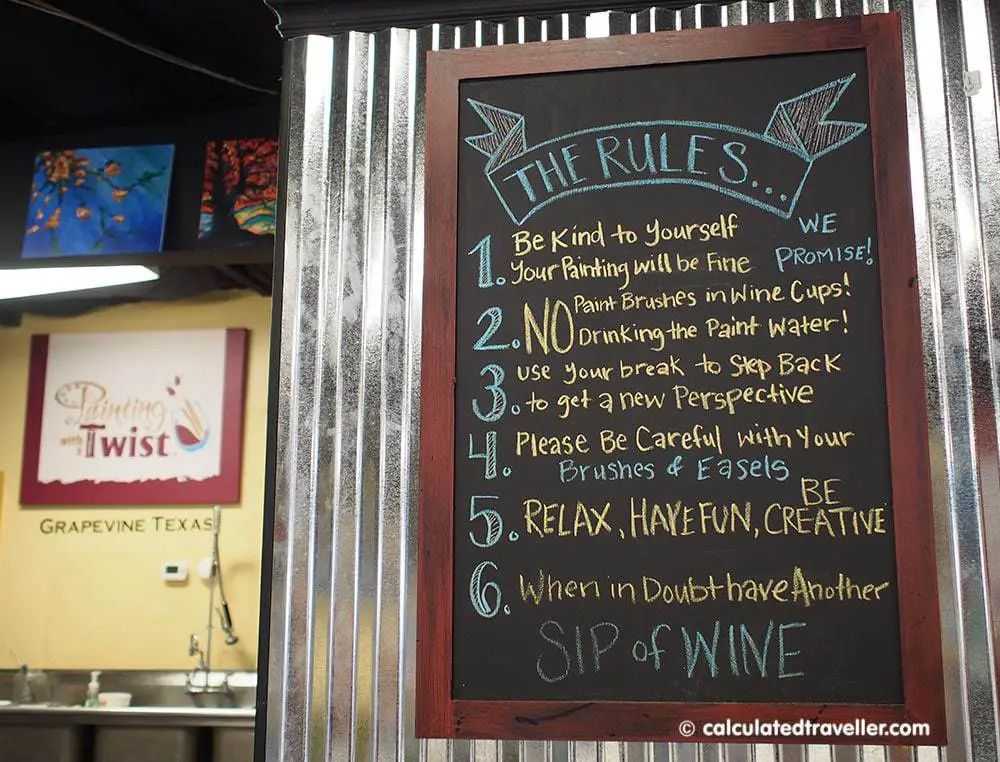 THE RULES...
WE
PROMISE!
1. Be Kind to Yourself
Your Painting will be Fine
2. NO Paint Brushes in Wine Cups!
Drinking the Paint Water!
3. use your break to Step Back
to get a new Perspective
4. Please Be Careful with Your
Brushes & Easels
5. RELAX, HAVE FUN, BE CREATIVE
6. When in Doubt have Another
SIP of WINE
Painting
with a
Twist
GRAPEVINE TEXAS
© calculatedtraveller.com